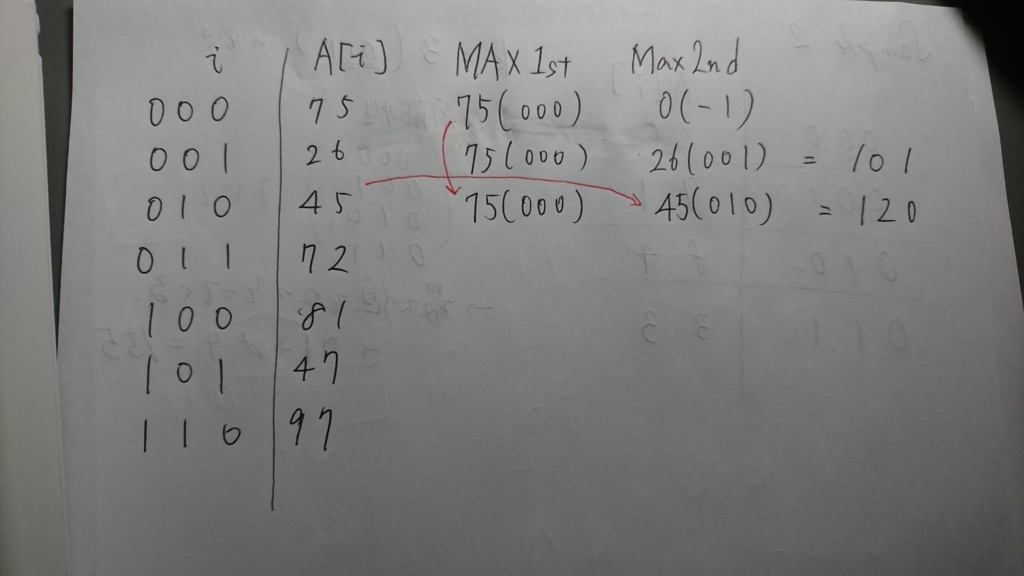 i A[i] MAX 1st Max 2nd
000 75 75(000) 0(-1)
001 26 75(000) 26(001) = 101
010 45 75(000) 45(010) = 120
011 72
100 81
101 47
110 97